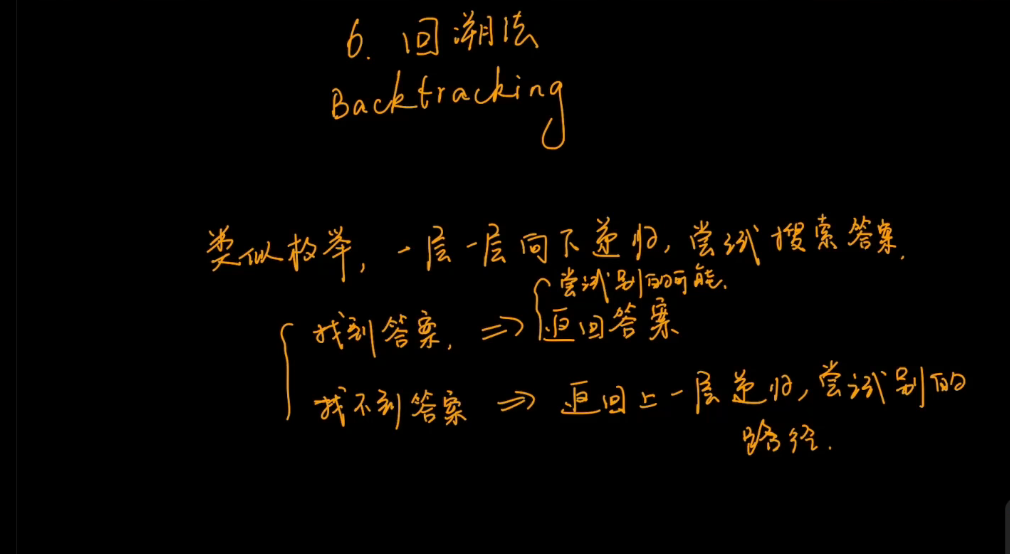 6. 回溯法
Backtracking
类似枚举, 一层一层向下递归, 尝试搜索答案.
尝试别的可能.
找到答案, => 返回答案
找不到答案 => 返回上一层递归, 尝试别的
路径.